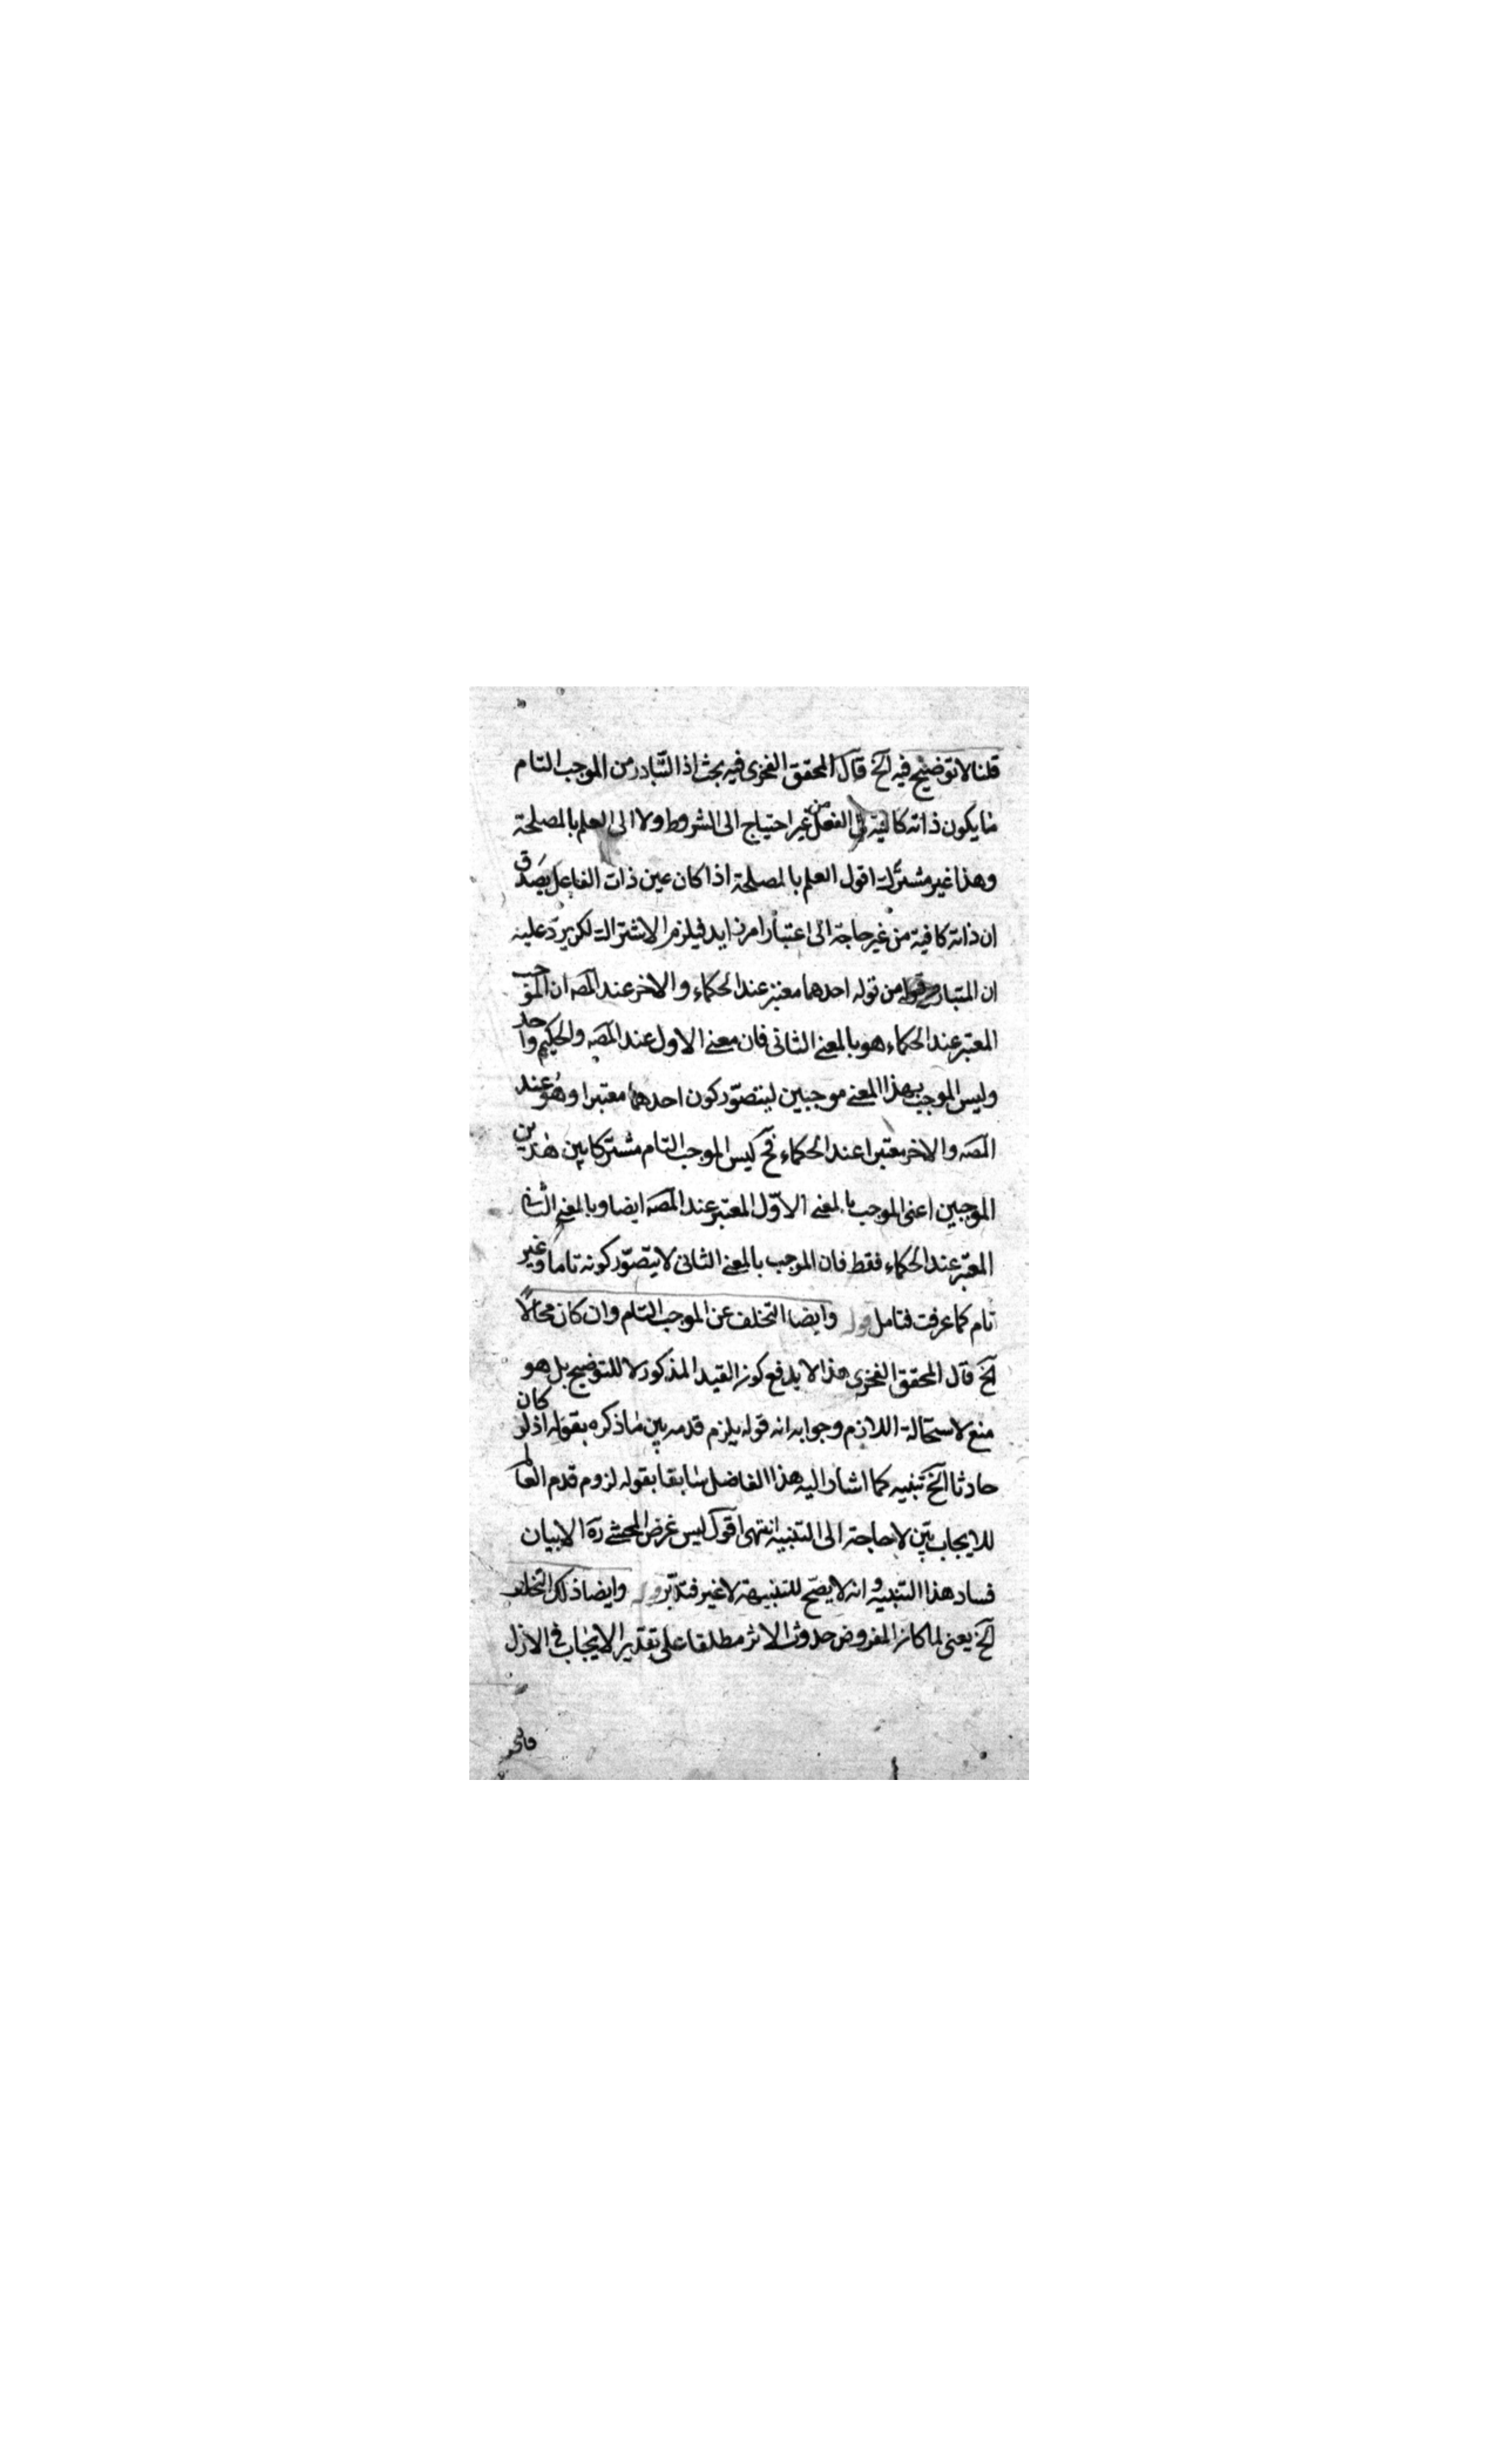 قلنا لا توضيح فيه الخ قال المحقق الفخرى فيه بحث اذ التبادر من الموجب التام
ما يكون ذاته كافية فى الفعل من غير احتياج الى الشروط ولا الى العلم بالمصلحة
وهذا غير مشترك اقول العلم بالمصلحة اذا كان عين ذات الفاعل يصدق
ان ذاته كافية من غير حاجة الى اعتبار امر زايد فيلزم الاشتراك لكن يرد عليه
ان المتبادر من قوله احدهما معتبر عند الحكماء والاخر عند المصه ان الموجب
المعتبر عند الحكماء هو بالمعنى الثانى فان معنى الاول عند المصه والحكيم واحد
وليس الموجب بهذا المعنى موجبين ليتصور كون احدهما معتبرا وهو عند
المصه والاخر معتبرا عند الحكماء فح ليس الموجب التام مشتركا بين هذين
الموجبين اعنى الموجب بالمعنى الاول المعتبر عند المصه ايضا وبالمعنى الثانى
المعتبر عند الحكماء فقط فان الموجب بالمعنى الثانى لا يتصور كونه تاما وغير
تام كما عرفت فتامل قوله وايضا التخلف عن الموجب التام وان كان محالا
الخ قال المحقق الفخرى هذا لا يدفع كون القيد المذكور لا للتوضيح بل هو
منع لاستحالة اللازم وجوابه انه قوله يلزم قدمه بين ما ذكره بقوله اذ لو كان
حادثا الخ تنبيه كما اشار اليه هذا الفاضل سابقا بقوله لزوم قدم العالم
للايجاب بين لا حاجة الى التنبيه انتهى اقول ليس غرض المحشى ره الا بيان
فساد هذا التنبيه وانه لا يصح للتنبيهة لا غير فتدبر قوله وايضا ذلك التخلف
الخ يعنى لما كان المفروض حدوث الاثر مطلقا على تقدير الايجاب فى الازل